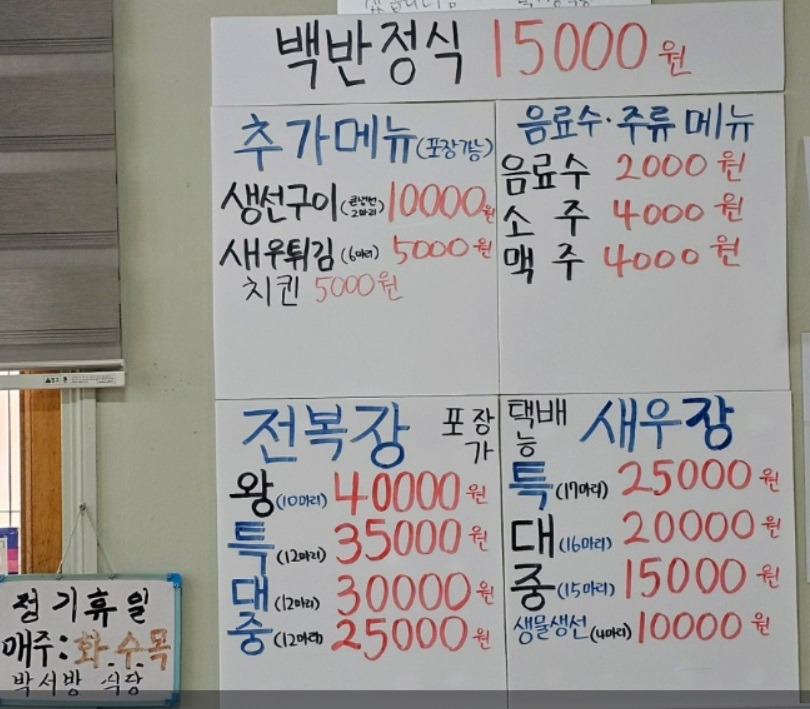 백반정식 15000원
추가메뉴(포장가능)
생선구이( 2마리) 10000원
새우튀김(6마리) 5000원
치킨 5000원
음료수·주류 메뉴
음료수 2000원
소주 4000원
맥주 4000원
전복장 포장
가
왕(10마리) 40000원
특(12마리) 35000원
대(12마리) 30000원
중(12마리) 25000원
택배 새우장
능
특(17마리) 25000원
대(16마리) 20000원
중(15마리) 15000원
생물생선(4마리) 10000원
정기휴일
매주:화.수.목
박서방 식당